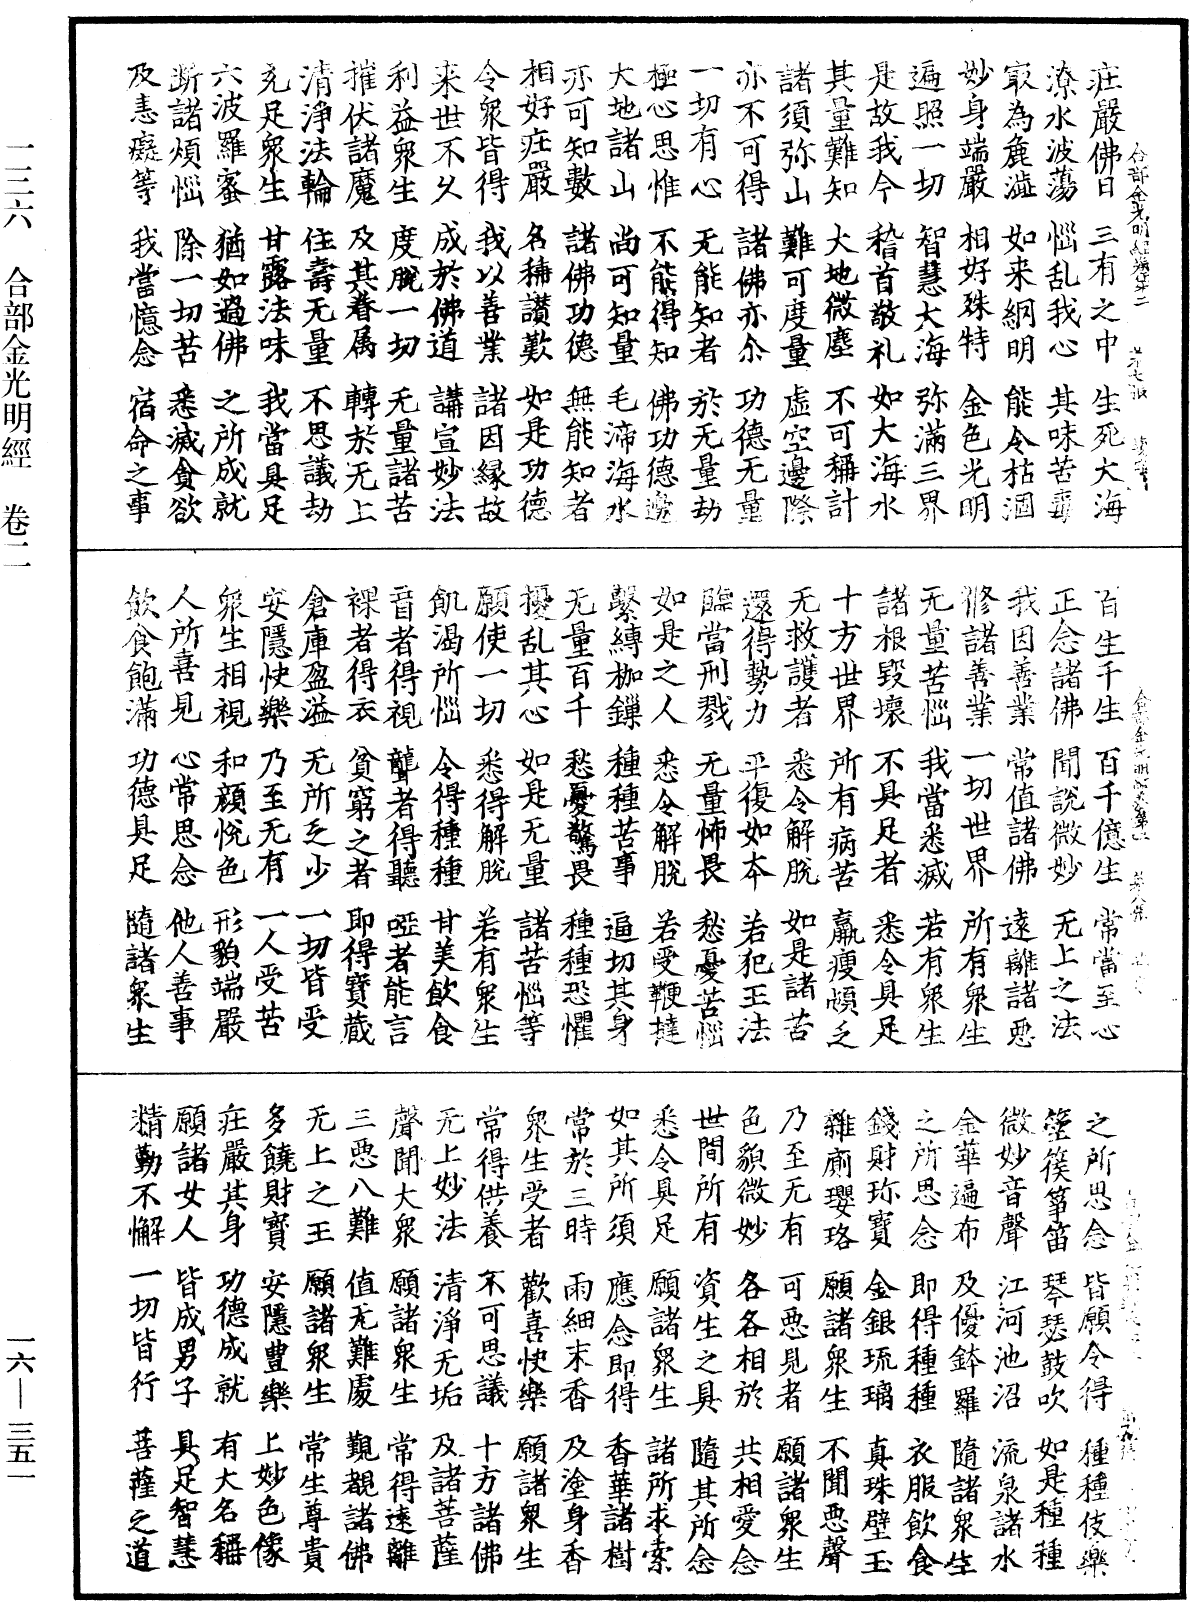 莊嚴佛日　三有之中　生死大海
潦水波蕩　惱乱我心　其味苦毒
冣為麁澁　如来網明　能令枯涸
妙身端嚴　相好殊特　金色光明
遍照一切　智慧大海　弥滿三界
是故我今　稽首敬礼　如大海水
其量難知　大地微塵　不可稱計
諸須弥山　難可度量　虛空邊際
亦不可得　諸佛亦尒　功德无量
一切有心　无能知者　於无量劫
極心思惟　不能得知　佛功德邊
大地諸山　尚可知量　毛渧海水
亦可知數　諸佛功德　無能知者
相好莊嚴　名稱讃歎　如是功德
令衆皆得　我以善業　諸因縁故
来世不久　成於佛道　講宣妙法
利益衆生　度脫一切　无量諸苦
摧伏諸魔　及其眷属　轉於无上
清淨法輪　住壽无量　不思議劫
充足衆生　甘露法味　我當具足
六波羅蜜　猶如過佛　之所成就
斷諸煩惱　除一切苦　悉滅貪欲
及恚癡等　我當憶念　宿命之事
合部金光明經卷第二　第七張
百生千生　百千億生　常當至心
正念諸佛　聞說微妙　无上之法
我因善業　常值諸佛　遠離諸惡
修諸善業　一切世界　所有衆生
无量苦惱　我當悉滅　若有衆生
諸根毀壞　不具足者　悉令具足
十方世界　所有病苦　羸瘦頓乏
无救護者　悉令解脫　如是諸苦
還得勢力　平復如本　若犯王法
臨當刑戮　无量怖畏　愁憂苦惱
如是之人　悉令解脫　若受鞭撻
繫縛枷鏁　種種苦事　逼切其身
无量百千　愁憂驚畏　種種恐懼
擾乱其心　如是无量　諸苦惱等
願使一切　悉得解脫　若有衆生
飢渴所惱　令得種種　甘美飲食
盲者得視　聾者得聽　啞者能言
裸者得衣　貧窮之者　即得寶藏
倉庫盈溢　无所乏少　一切皆受
安隱快樂　乃至无有　一人受苦
衆生相視　和顔悅色　形貌端嚴
人所喜見　心常思念　他人善事
飲食飽滿　功德具足　隨諸衆生
之所思念　皆願令得　種種伎樂
箜篌箏笛　琴瑟鼓吹　如是種種
微妙音聲　江河池沼　流泉諸水
金華遍布　及優鉢羅　隨諸衆生
之所思念　即得種種　衣服飲食
錢財珎寶　金銀琉璃　真珠璧玉
雜廁瓔珞　願諸衆生　不聞惡聲
乃至无有　可惡見者　願諸衆生
色貌微妙　各各相於　共相愛念
世間所有　資生之具　隨其所念
悉令具足　願諸衆生　諸所求索
如其所須　應念即得　香華諸樹
常於三時　雨細末香　及塗身香
衆生受者　歡喜快樂　願諸衆生
常得供養　不可思議　十方諸佛
无上妙法　清淨无垢　及諸菩薩
聲聞大衆　願諸衆生　常得遠離
三惡八難　值无難處　覲覩諸佛
无上之王　願諸衆生　常生尊貴
多饒財寶　安隱豊樂　上妙色像
莊嚴其身　功德成就　有大名稱
願諸女人　皆成男子　具足智慧
精勤不懈　一切皆行　菩薩之道
一三六　合部金光明經　卷二
一六—三五一